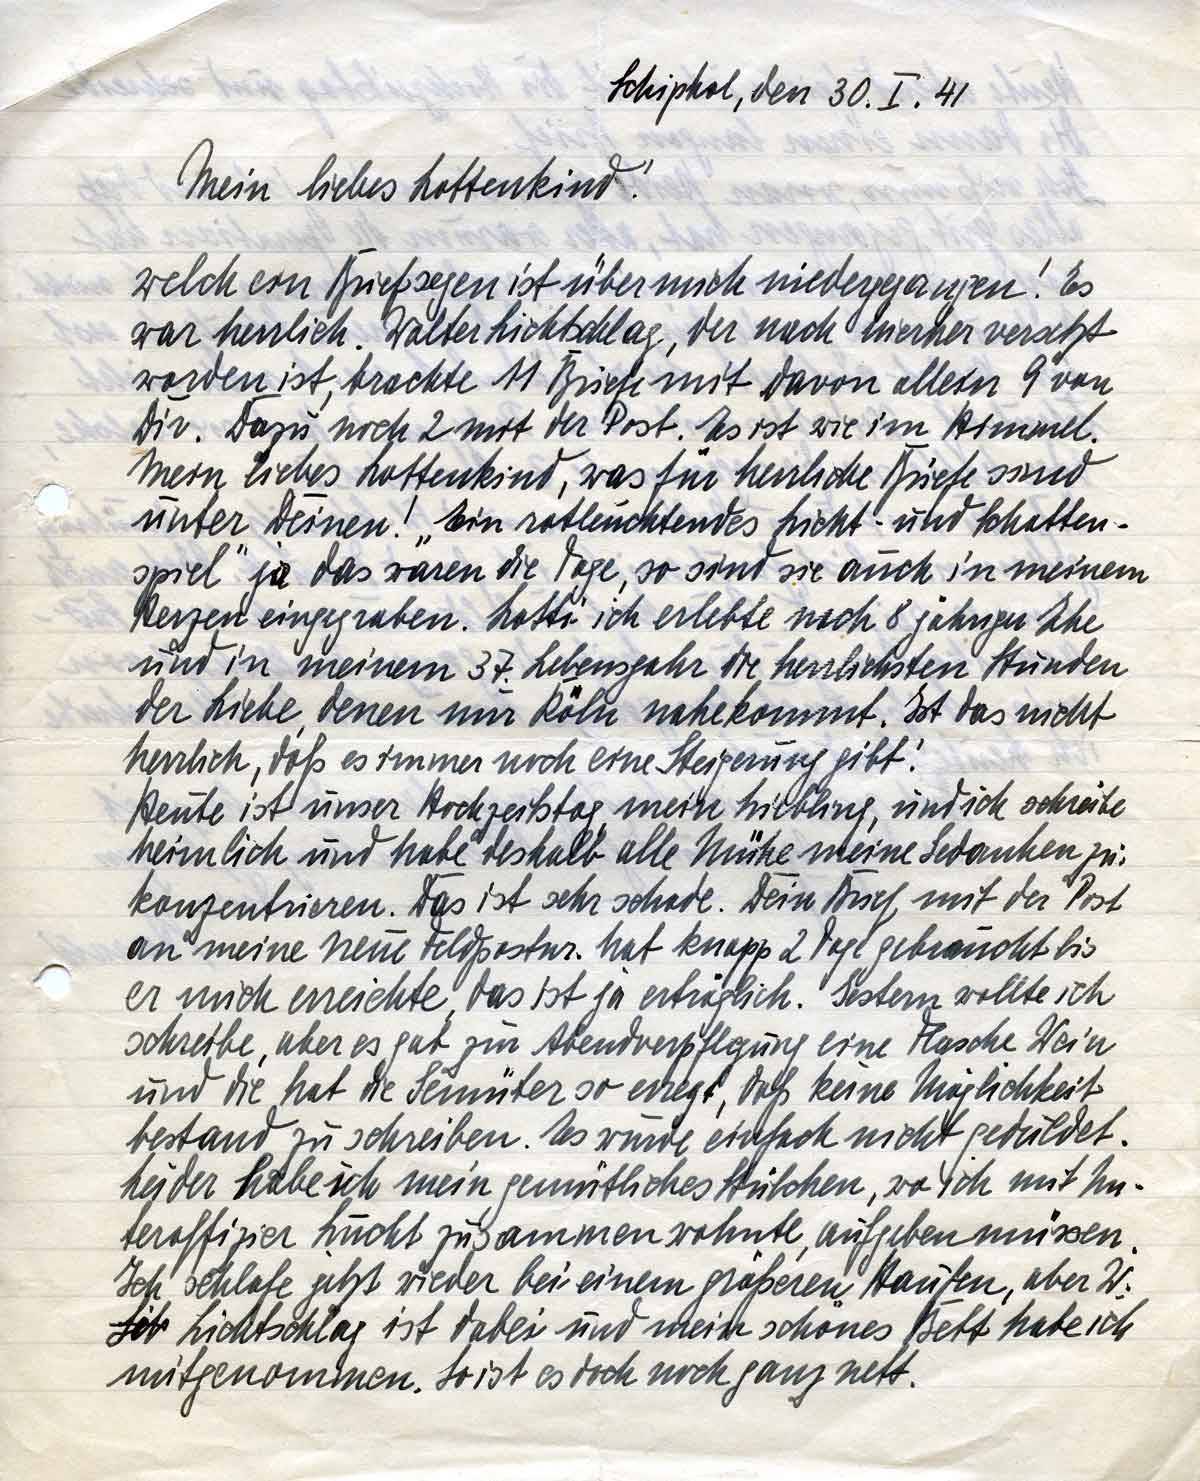 Schiphol, den 30. I. 41
Mein liebes Lottenkind!
welch ein Briefsegen ist über mich niedergegangen! Es
war herrlich. Walter Lichtschlag, der nach hierher versetzt
worden ist, brachte 11 Briefe mit davon allein 9 von
Dir. Dazu noch 2 mit der Post. Es ist wie im Himmel.
Mein liebes Lottenkind, was für herrliche Briefe sind
unter Deinen! „Ein rotleuchtendes Licht- und Schatten-
spiel" ja das waren die Tage, so sind sie auch in meinem
Herzen eingegraben. Lotti ich erlebte nach 8 jähriger Ehe
und in meinem 37. Lebensjahr die herrlichsten Stunden
der Liebe, denen nur Köln nahekommt. Ist das nicht
herrlich, daß es immer noch eine Steigerung gibt!
Heute ist unser Hochzeitstag mein Liebling, und ich schreibe
heimlich und habe deshalb alle Mühe meine Gedanken zu
konzentrieren. Das ist sehr schade. Dein Brief mit der Post
an meine neue Feldpostnr. hat knapp 2 Tage gebraucht bis
er mich erreichte, das ist ja erträglich. Gestern wollte ich
schreibe, aber es gab zur Abendverpflegung eine Flasche Wein
und die hat die Gemüter so erregt, daß keine Möglichkeit
bestand zu schreiben. Es wurde einfach nicht geduldet.
Leider habe ich mein gemütliches Stübchen, wo ich mit Un-
teroffizier Lucht zusammen wohnte, aufgeben müssen.
Ich schlafe jetzt wieder bei einem größeren Haufen, aber W.
Lichtschlag ist dabei und mein schönes Bett habe ich
mitgenommen. So ist es doch noch ganz nett.